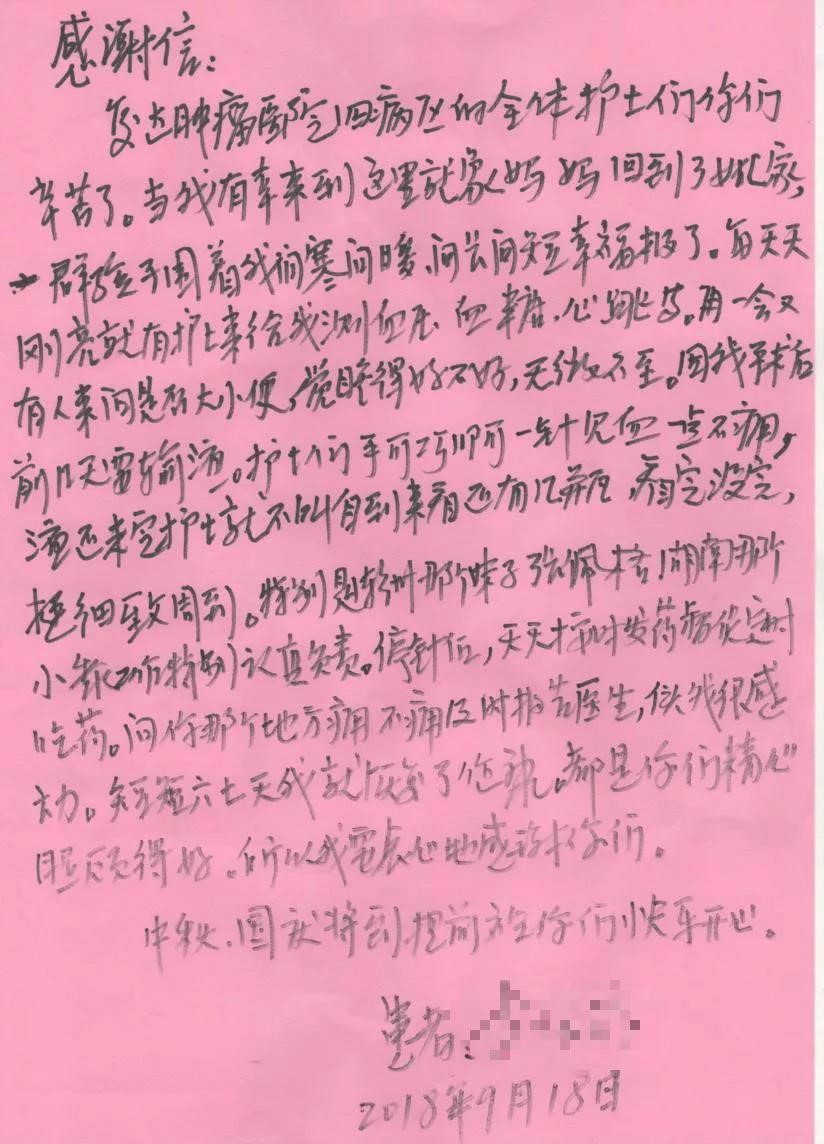 感谢信:
发达肿瘤医院四病区的全体护士们你们
辛苦了。当我有幸来到这里就象妈妈回到了娘家,
一群孩子围着我问寒问暖、问长问短幸福极了。每天天
刚亮就有护士来给我测血压、血糖、心跳等。再一会又
有人来问是否大小便,觉睡得好不好,无微不至。因我手术后
前几天需输液。护士们手可巧啊可一针见血一点不痛,
液还未完护士就不叫自到来看还有几瓶,看完没完,
极细致周到。特别是郑州那个妹子张佩枝!湖南那个
小工作特别认真负责。停针后,天天按时发药督促定时
吃药。问你那个地方痛不痛及时报告医生,使我很感
动。短短六七天我就恢复了健康。都是你们精心
照顾得好。所以我要衷心地感谢你们。
中秋、国庆将到提前祝你们快乐开心。
患者:
2018年9月18日